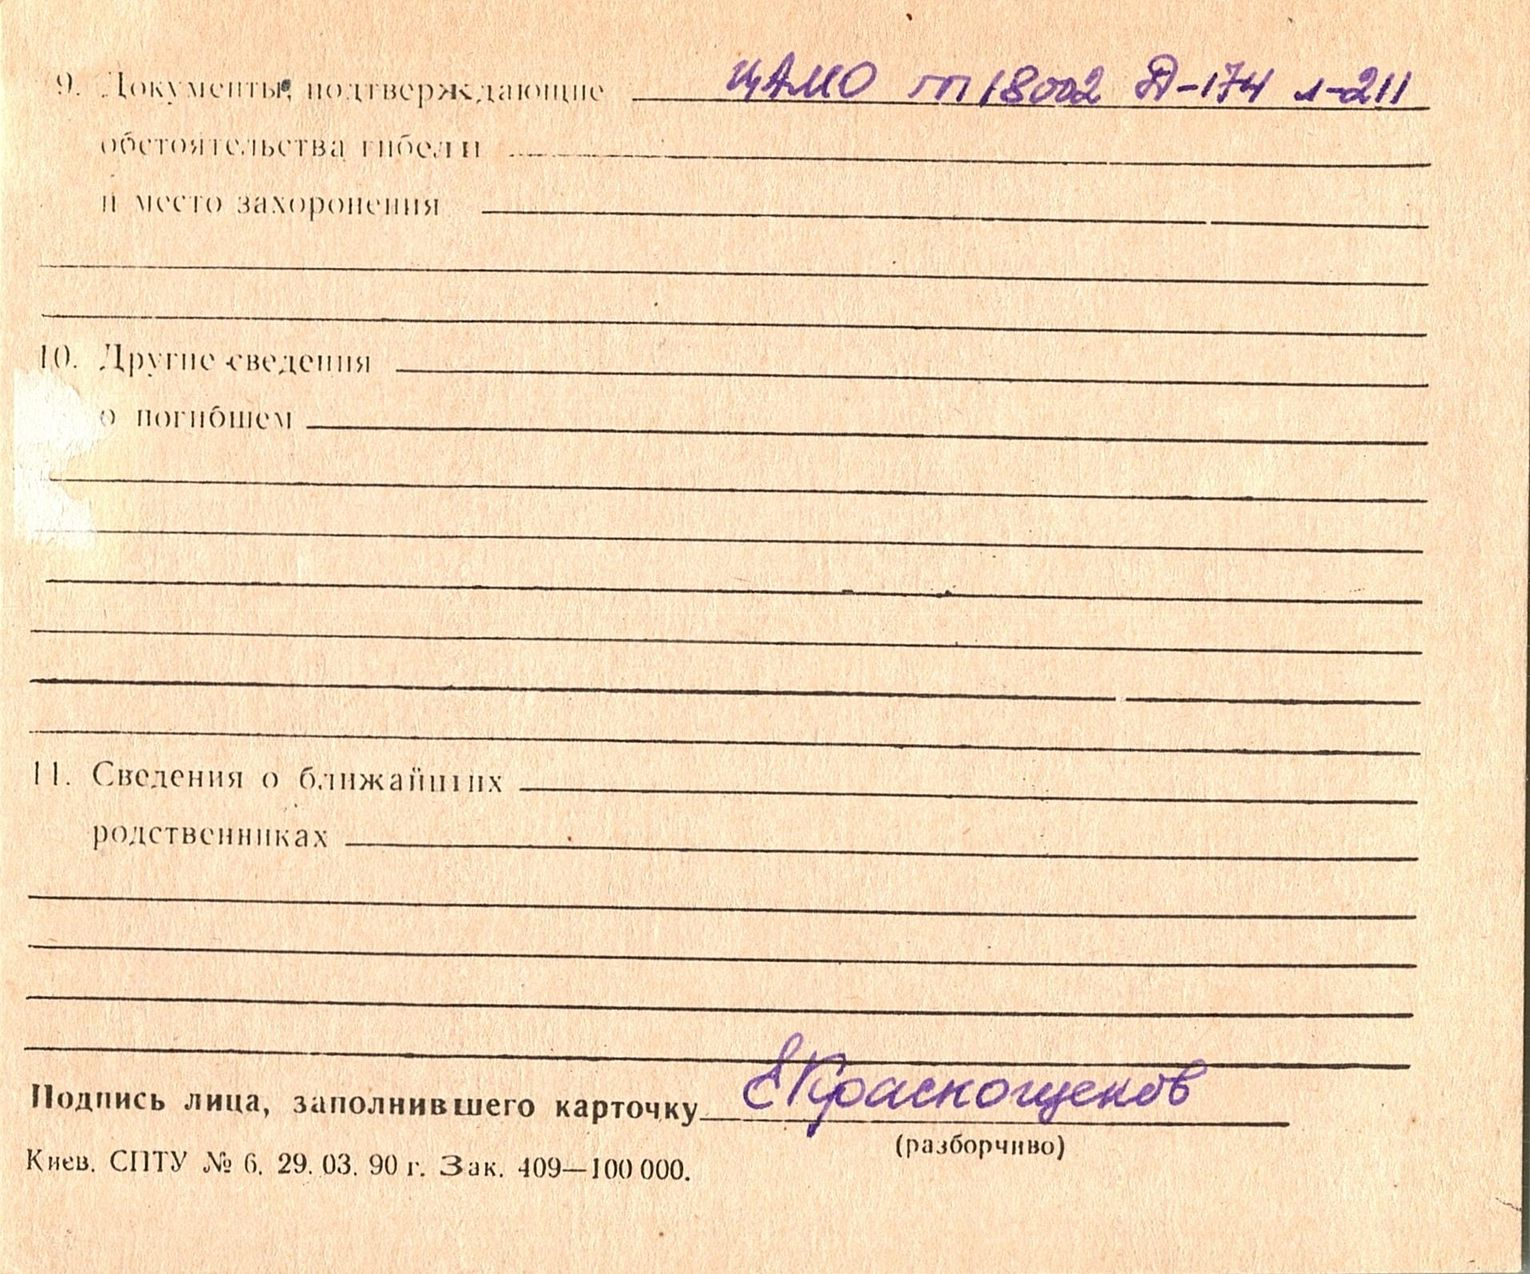 9. Документы, подтверждающие ЦАМО оп 18002 Д-174 л-211
обстоятельства гибели
и место захоронения
10. Другие сведения
о погибшем
11. Сведения о ближайших
родственниках
Подпись лица, заполнившего карточку ЕКраснощеков
(разборчиво)
Киев. СПТУ № 6. 29. 03. 90 г. Зак. 409—100 000.